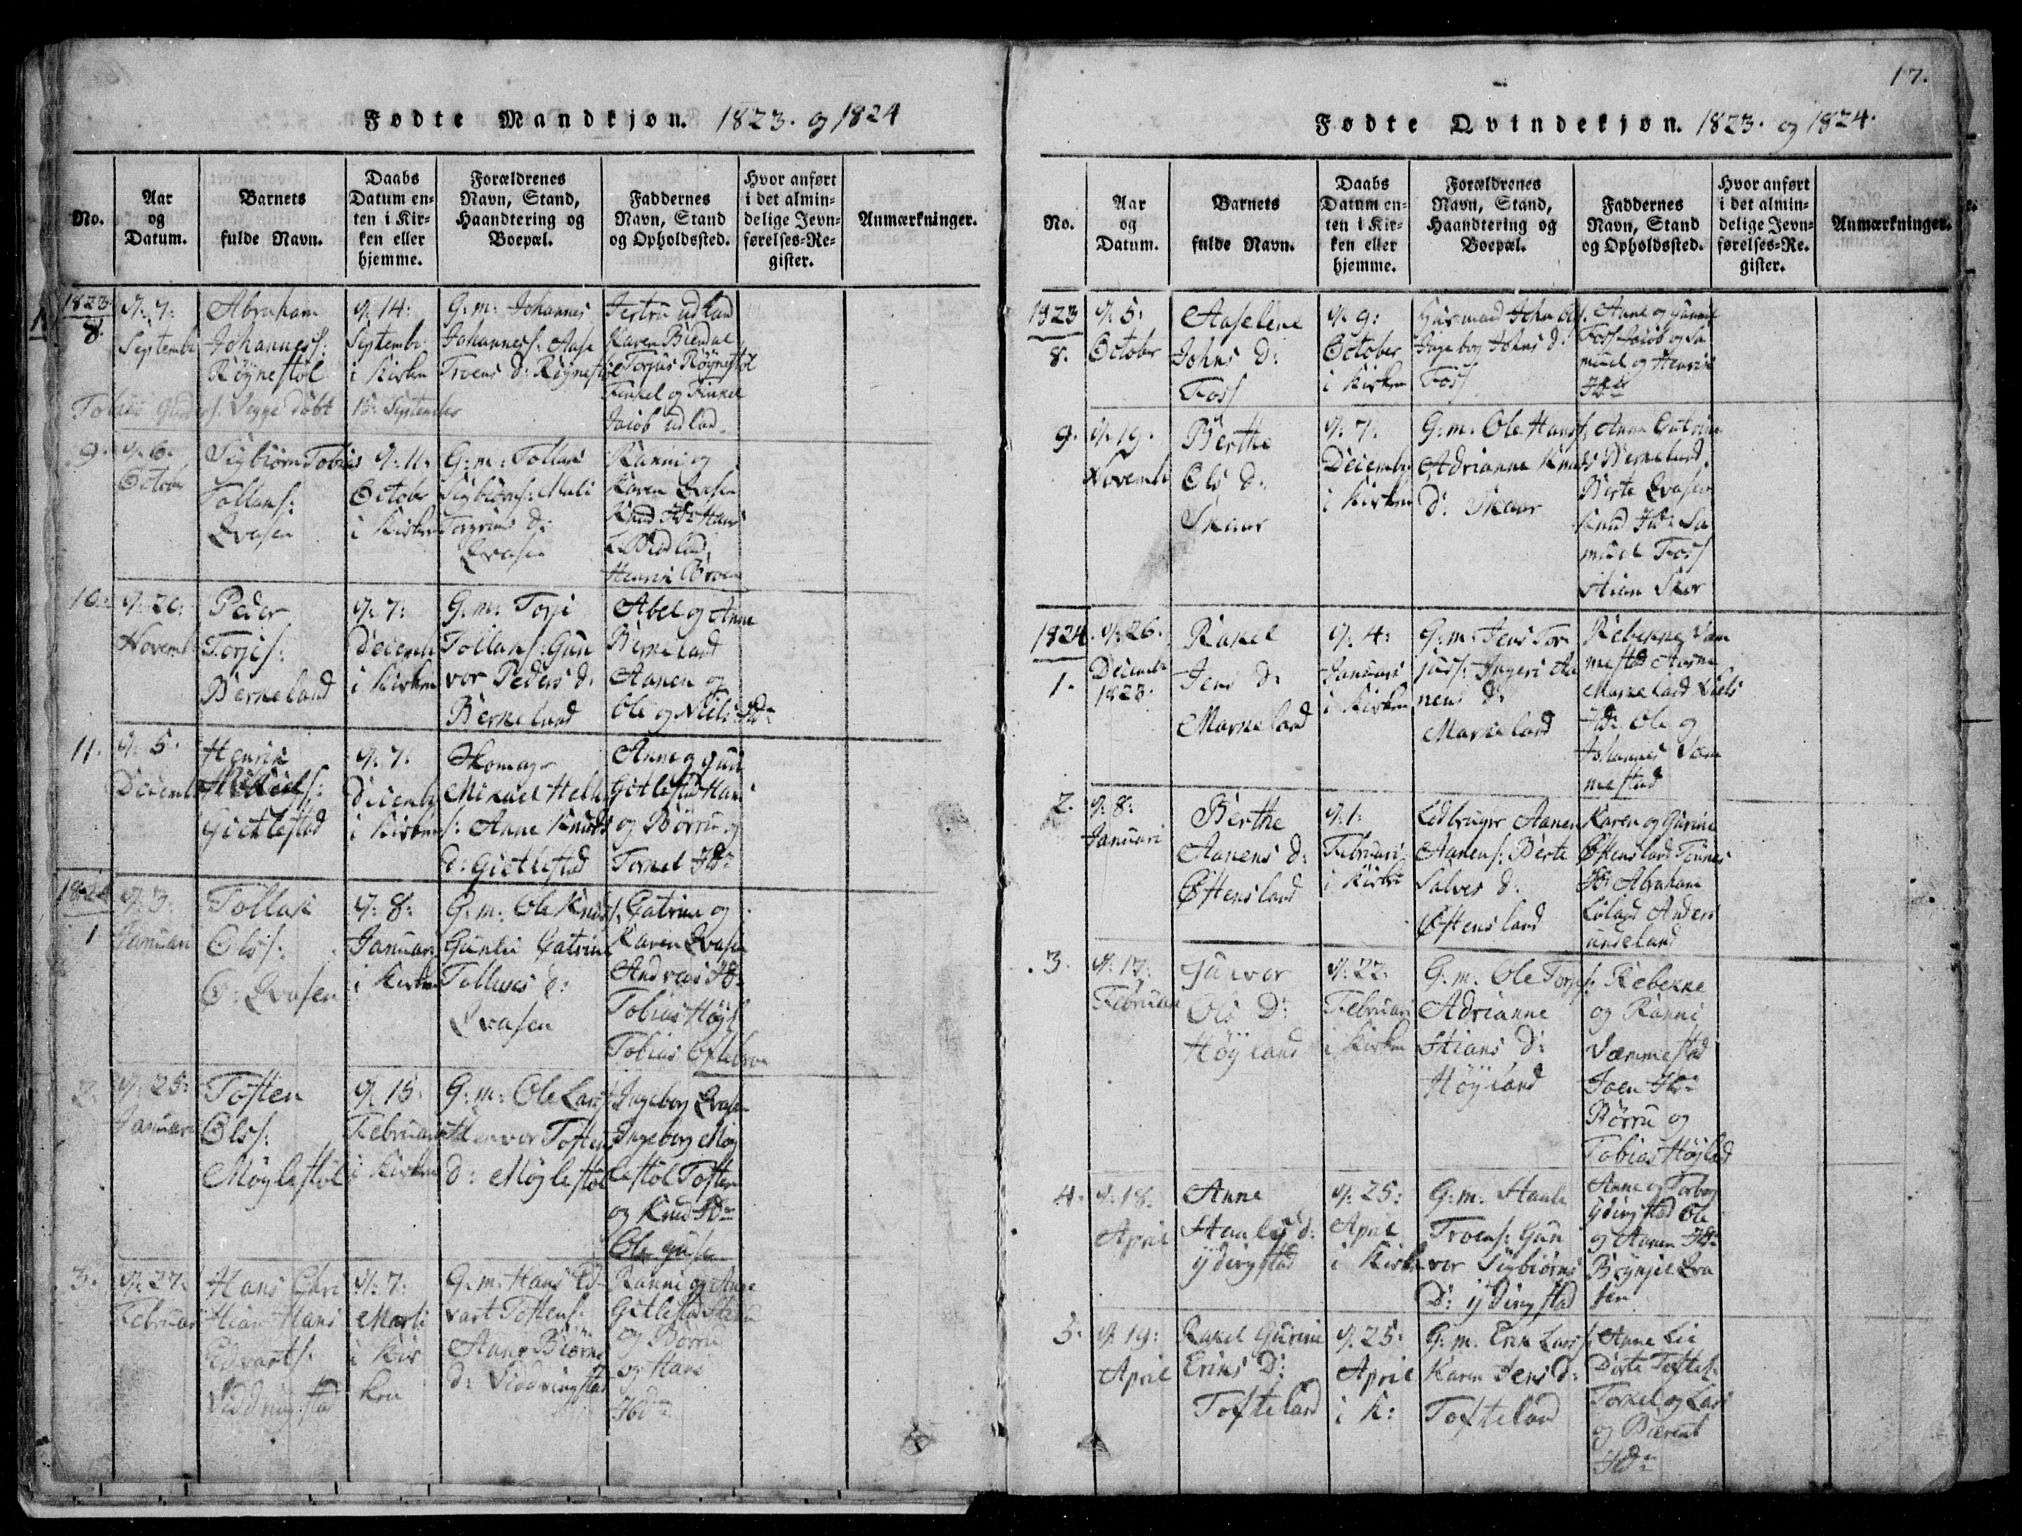 17.
Fødte Mandkjøn. 1823. og 1824
No.
Aar
og
Datum.
Barnets
fulde Navn.
Daabs
Datum en-
ten i Kir-
ken eller
hjemme.
Forældrenes
Navn, Stand,
Haandtering og
Boepæl.
Faddernes
Navn, Stand
og Opholdssted.
Hvor anført
i det almin-
delige Jevn-
førelses-Re-
gister.
Anmærkninger.
1823
8.
d. 7:
Septembr
Abraham
Johanness:
Röynestöl
d. 14:
Septembr
i Kirken
G: m: Johannes
Johanness: Aase
Troens d: Röynestöl
Udland
Karen
Torjus Röynestöl
og
Jacob Udland
Tobias Gunders: Segge döbt 15: September
9.
d. 6.
Octobr
Sigbiörn Tobias
Tollaks:
Qvasen
d. 11:
October
i Kirken
G: m: Tollak
Sigbiörns: Mali
Torgrims d:
Qvasen
Ranni og
Karen Qvasen
Knud Ibdn Hans
Henrik Broen
10.
d. 20:
Novembr
Peder
Torjes:
Berneland
d. 7:
Decembr
i Kirken
G: m: Torje
Tollaks: Gun
vor Peders d:
Berneland
Abel og Anne
Berneland
Aanen og
Ole og Niels Ibdn
11.
d. 5.
Decembr
Henrik
Mikkels:
Gietlestad
d. 7:
Decembr
i Kirken
Skomager
Mikael
s: Anne Knuds
d: Gietlestad
Anne og Guri
Gitlestad Hans
og Börru og
Torkel Ibdn
1824
1
d. 3:
Januari
Tollak
Ols:
Ø: Qvasen
d. 8:
Januari
i Kirken
G: m: Ole Knuds
Gunlei Catrine
Tolleves d:
Qvasen
Catrine og
Karen Qvasen
Andreas Ibdn
Tobias
Tobias
2.
d. 25:
Januari
Tosten
Ols:
Möglestöl
d. 15:
Februari
i Kirken
G: m: Ole Lars
Tostens
d: Möglestöl
Ingeborg Qvasen
Ingeborg Mög
lestöl Tosten
og Knud Ibdn
Ole
3.
d. 27:
Februar
Hans Chri
stian Hans
Edvarts:
Viddringstad
d. 7:
Marti
i Kir
ken
G: m: Hans Ed
vart Tostens:
Anne Biörns
d: Viddringstad
Ranni og Anne
Gitlestad
og Börru
og Hans
Ibdn
Fødte Qvindekjøn. 1823. og 1824.
No.
Aar
og
Datum.
Barnets
fulde Navn.
Daabs
Datum en-
ten i Kir-
ken eller
hjemme.
Forældrenes
Navn, Stand,
Haandtering og
Boepæl.
Faddernes
Navn, Stand
og Opholdssted.
Hvor anført
i det almin-
delige Jevn-
førelses-Re-
gister.
Anmærkninger.
1823
8.
d. 5:
October
Aaselene
Johns d:
Foss
d. 9:
October
i Kirken
Huusmand John Ols
Ingeborg Johns d:
Foss
Anne og Gunnil
Foss Jacob og Sa
muel og Henrik
Ibdn
9.
d. 19.
Novembr
Berthe
Ols d:
Skaar
d. 7:
Decembr
i Kirken
G: m: Ole Hans
Adrianne Knuds
d: Skaar
Anne Catrine
Berneland
Berte Qvasen
Knud Ibdn Sa
muel Foss
Stien Skor
1824.
1.
d. 26.
Decembr
1823.
Rakel
Jens d:
Markeland
d. 4:
Januari
i Kirken
G: m: Jens Tor
jus: Ingeri Aa
nens d:
Markeland
Rebekke Vam
mestad Anne
Markeland Niels
Ibdn Ole og
Johannes Vam
mestad
2.
d. 8:
Januari
Berthe
Aanens d:
Østensland
d. 1:
Februari
i Kirken
Ledbruger Aanen
Aanens: Berte
Salves d:
Østensland
Karen og Gurine
Østensland Tönnes
Ibdn Abraham
Anders
undeland
3.
d. 17:
Februari
Gunvor
Ols D:
Höyland
d. 22:
Februari
i Kirken
G: m. Ole Torjes
Adrianne
Stians D:
Höyland
Rebekke
og Ranni
Vammestad
Joen Ibdn
Börru og
Tobias Höyland
4.
d. 18.
April
Anne
Staale d:
Ydingstad
d. 25:
April
i Kirken
G: m. Staale
Troens: Gun
vor Sigbiörns
D: Ydingstad
Anne og Torbor
Ydingstad Ole
og Aanen Ibdn
Bryngel Qva
sen
5.
d. 19:
April
Rakel Gurine
Eriks D:
Tofteland
d. 25:
April
i K:
G: m. Erik Lars
Karen Jens d:
Tofteland
Anne Lie
Dorte
Torkel og Lars
og Berent
Ibdn